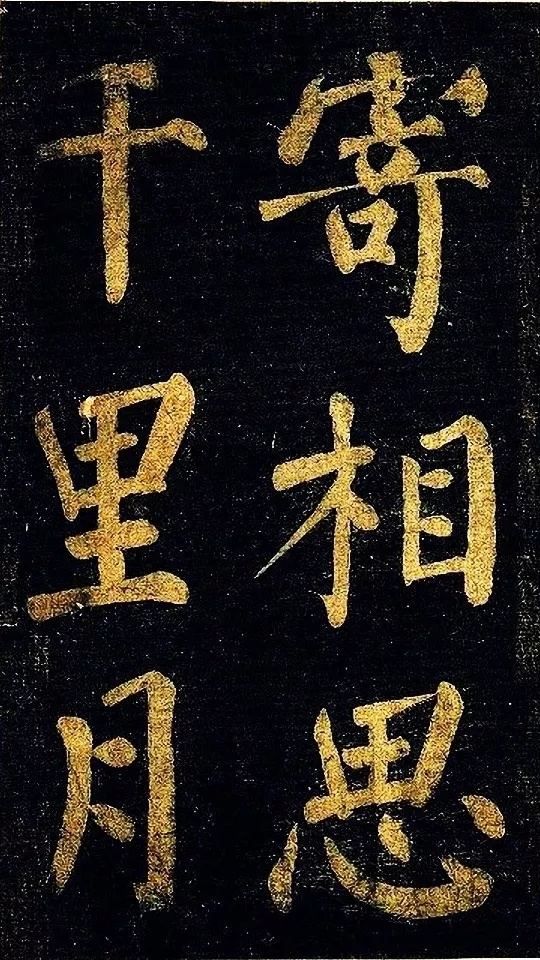 寄相思
千里月